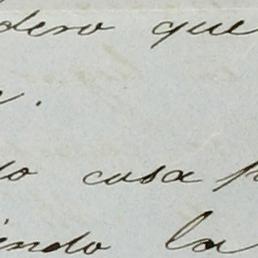 dero que
.
do cosa p
iendo la